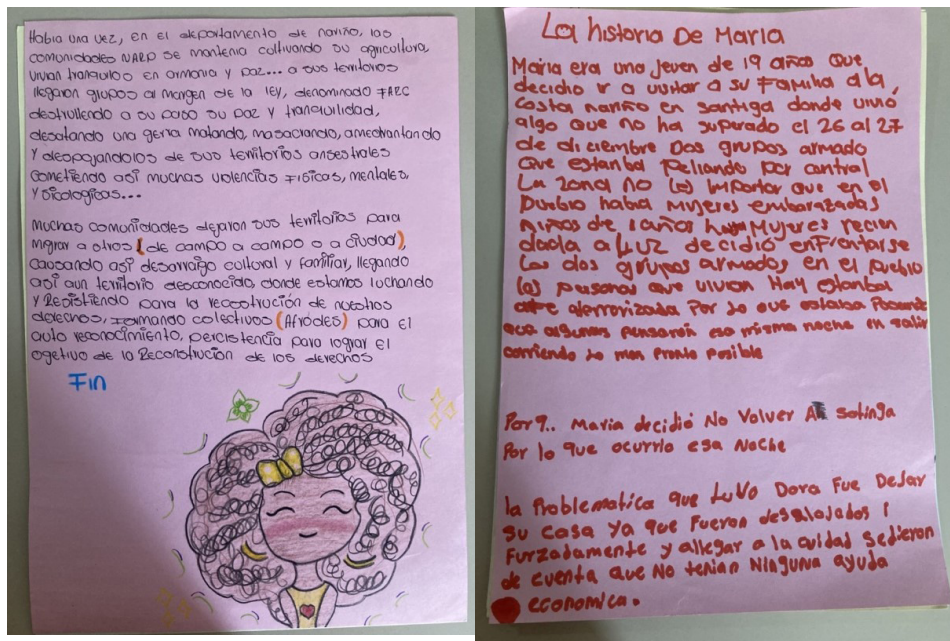 Había una vez, en el departamento de nariño, las
comunidades NARP se mantenía cultivando su agricultura,
vivian tranquilos en armonia y paz... a sus territorios
llegaron grupos al margen de la ley, denominado FARC
destrullendo a su paso su paz y tranquilidad,
desatando una gerra matando, masacrando, amedrantando
y despojandolos de sus territorios ansestrales
cometiendo asi muchas violencias Fisicas, mentales,
y sicologicas...
Muchas comunidades dejaron sus territorios para
migrar a otros (de campo a campo o a ciudad),
causando asi desarraigo cultural y familiar, llegando
asi aun territorio desconocido, donde estamos luchando
y Resistiendo para la recostrución de nuestros
derechos, Formando colectivos (Afrodes) para El
auto reconocimiento, percistencia para lograr El
ogetivo de la Reconstrucion de los derechos
Fin
La historia De Maria
Maria era una jeven de 19 años que
decidio ir a visitar a su Familia a la
costa nariño en santiga donde vivio
algo que no ha superado el 26 al 27
de diciembre Dos grupos armado
que estanbal Peliando por cantral
La zona no les importar que en el
pueblo habia mujeres embarazadas
niños de 1 años Mujeres recien
dada a LUZ decidió enfrontarse
Los dos grupos armados en el pueblo
las personas que vivian Hay estanbal
aterrorizada Por lo que estaba Pasando
que algunas pensaron esa misma noche en salir
corriendo lo mas pronto posible
Porq.. Maria decidió No Volver A sotinga
Por lo que ocurrio esa Noche
la Problematica que tuvo Dora Fue Dejar
Su casa ya que fueron desalojados
Furzadamente y allegar a la cuidad sedieron
de cuenta que No tenian Ninguna ayuda
economica.